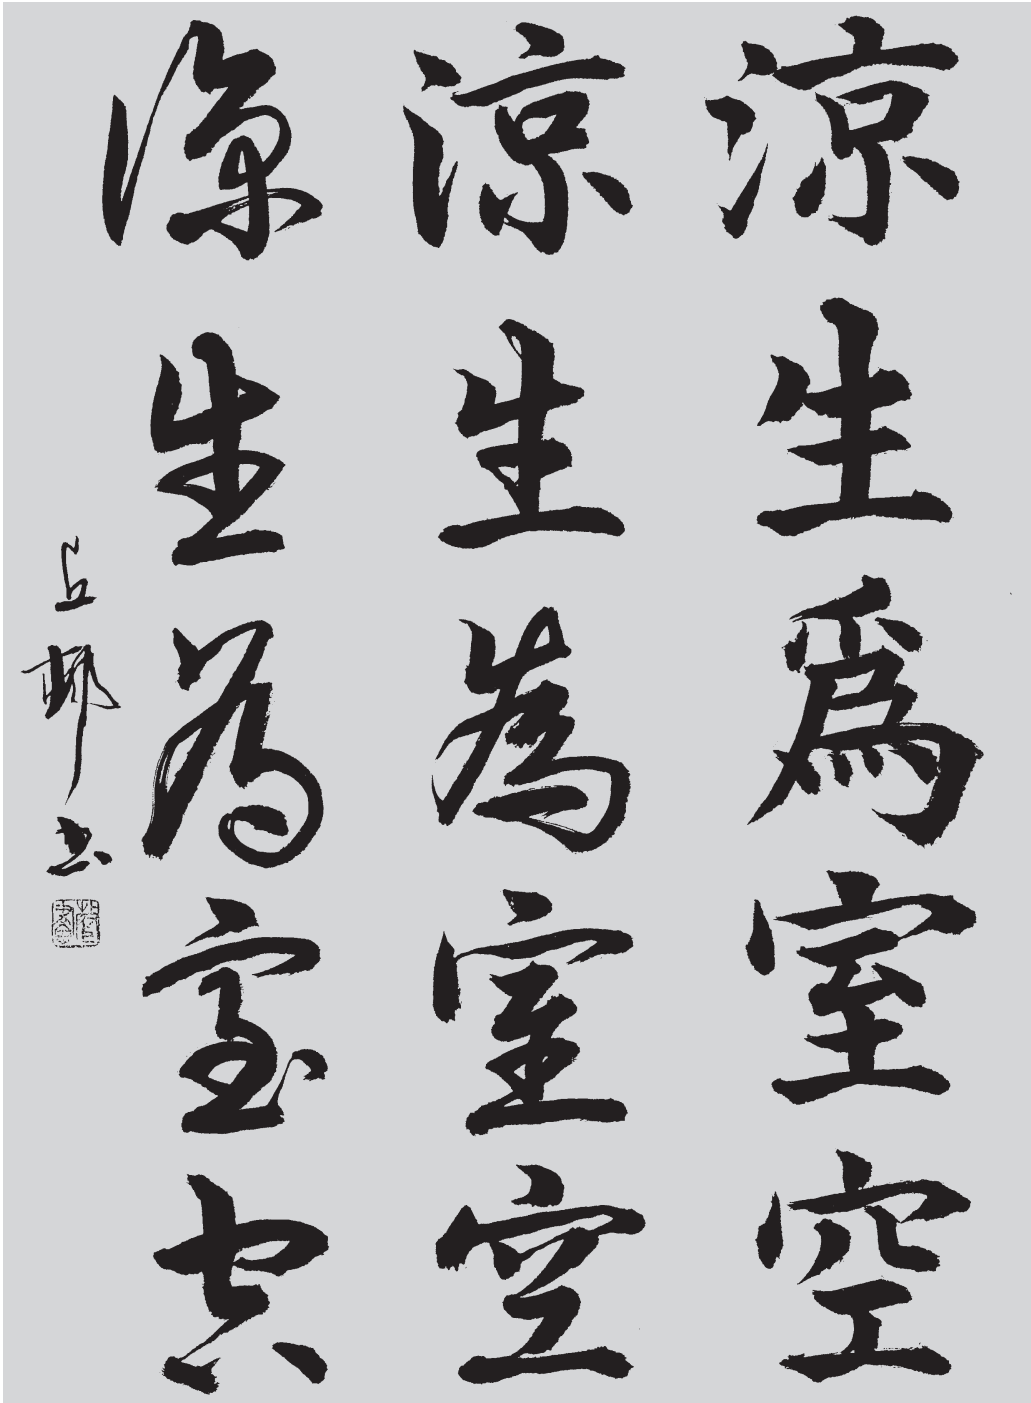 涼生爲室空
涼生為室空
涼生為室空
丘邨书